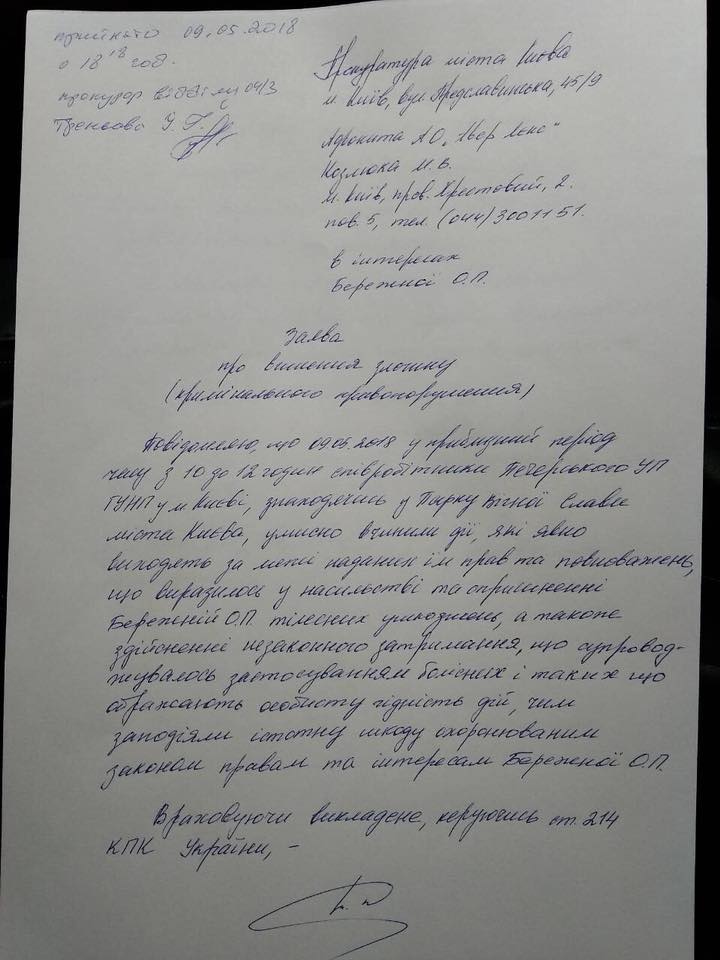 прийнято 09.05.2018
о 18 18 год.
прокурор відділу 04/3
Прокуратура міста Києва
м. Київ, вул Предславинська, 45/9
Адвоката АО „Авер Лекс"
Козлюка М. В.
м. Київ, пров. Хрестовий, 2.
пов. 5, тел. (044) 3001151.
в інтересах
Бережної О.П.
Заява
про вчинення злочину
(кримінального правопорушення)
Повідомляю, що 09.05.2018 у приблизний період
часу з 10 до 12 годин співробітники Печерського УП
ГУНП у м Києві, знаходячись у Парку Вічної Слави
міста Києва, умисно вчинили дії, які явно
виходять за межі наданих їм прав та повноважень,
що виразилось у насильстві та спричиненні
Бережній О.П. тілесних ушкоджень, а також
здійсненні незаконного затримання, що супровод-
жувалось застосуванням болісних і таких що
ображають особисту гідність дій, чим
заподіяли істотну шкоду охоронюваним
законом правам та інтересам Бережної О.П.
Враховуючи викладене, керуючись ст. 214
КПК України, –